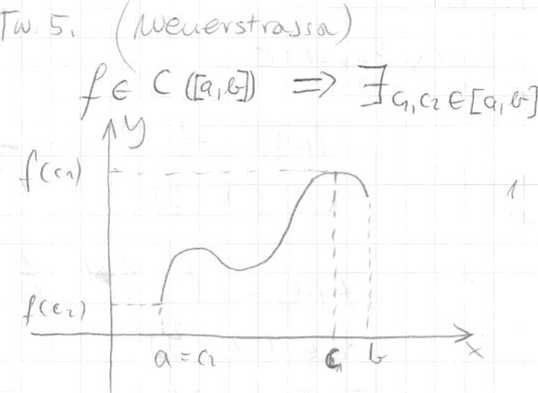 Tw 5. (Weierstrassa)
f ∈ C([a,b]) ⇒ ∃ c₁,c₂ ∈ [a,b]
y
f(c₁)
f(c₂)
a = c₂ c₁ b x